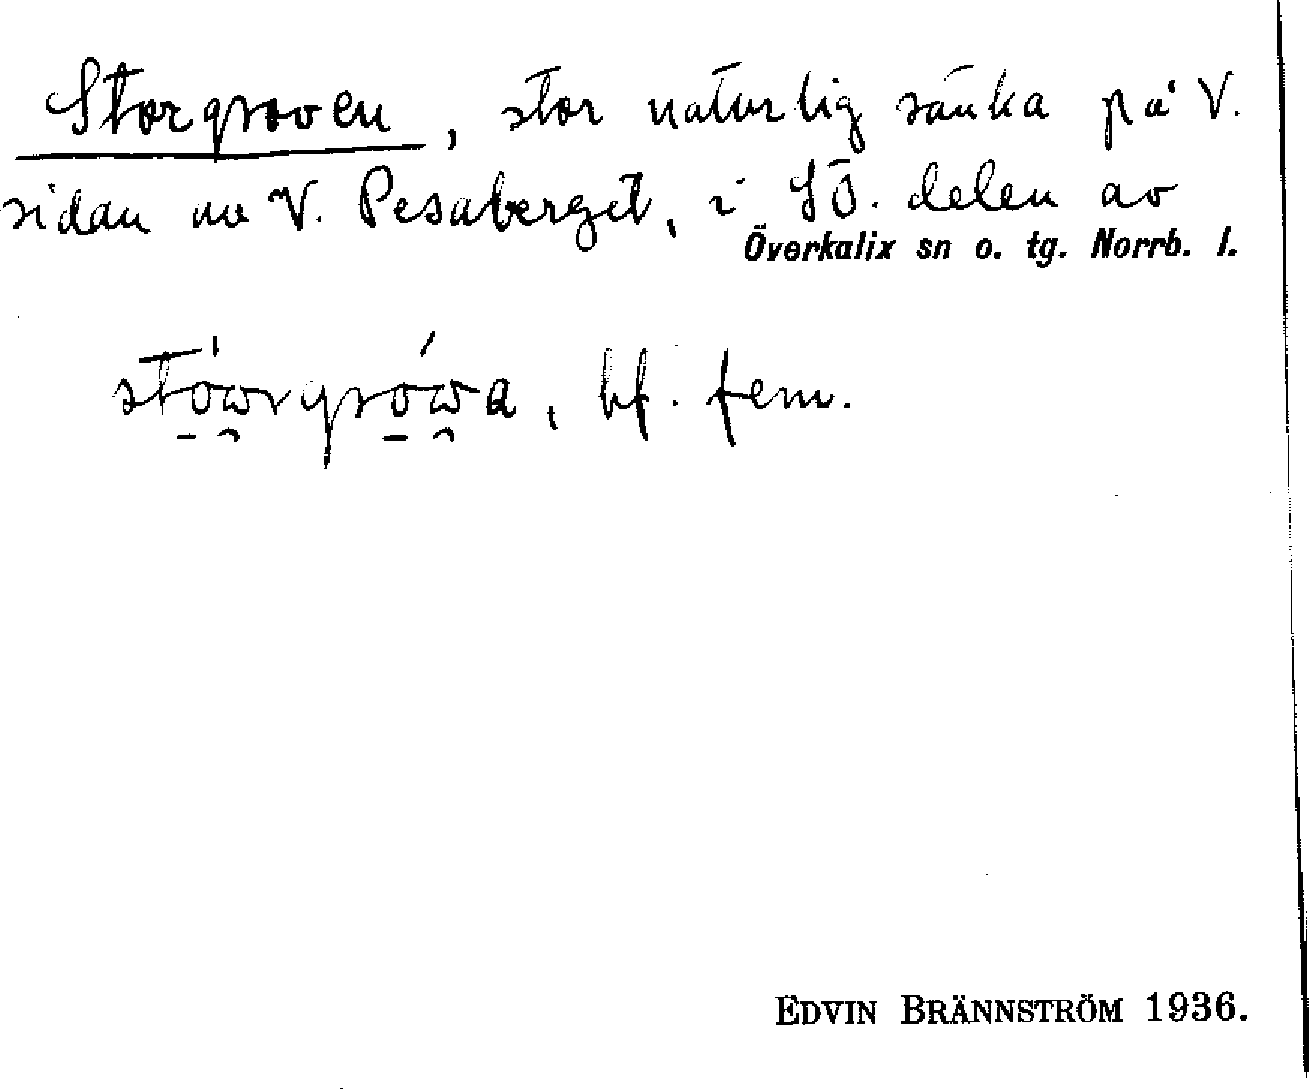 Storgroven, stor naturlig sänka på V.
sidan av V. Pesaberget, i SÖ. delen av
Överkalix sn o. tg. Norrb. l.
stówrgrówa, bf. fem.
EDVIN BRÄNNSTRÖM 1936.